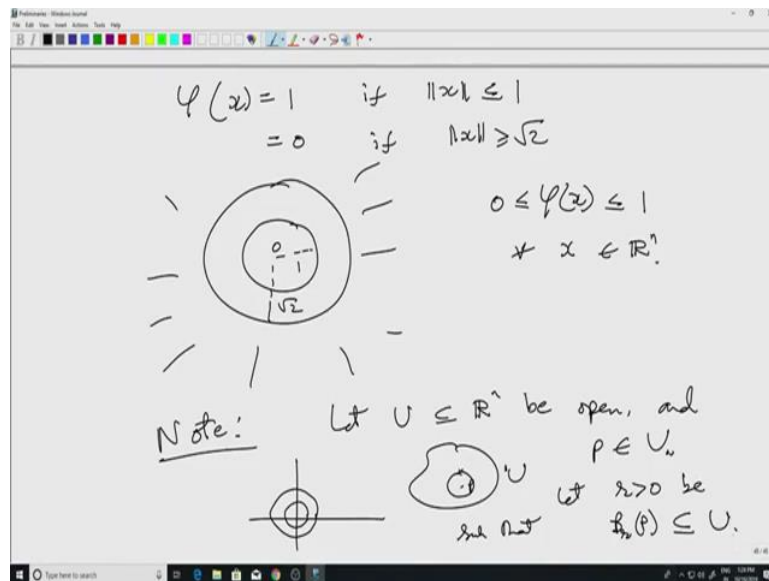 Preliminaries - Windows Journal
File Edit View Insert Actions Tools Help
φ(x) = 1 if ||x|| ≤ 1
= 0 if ||x|| ≥ √2
0 ≤ φ(x) ≤ 1
∀ x ∈ ℝⁿ.
0
1
√2
Note: Let U ⊆ ℝⁿ be open, and
p ∈ U.
U
Let r>0 be
such that Bᵣ(p) ⊆ U.
Type here to search
ENG